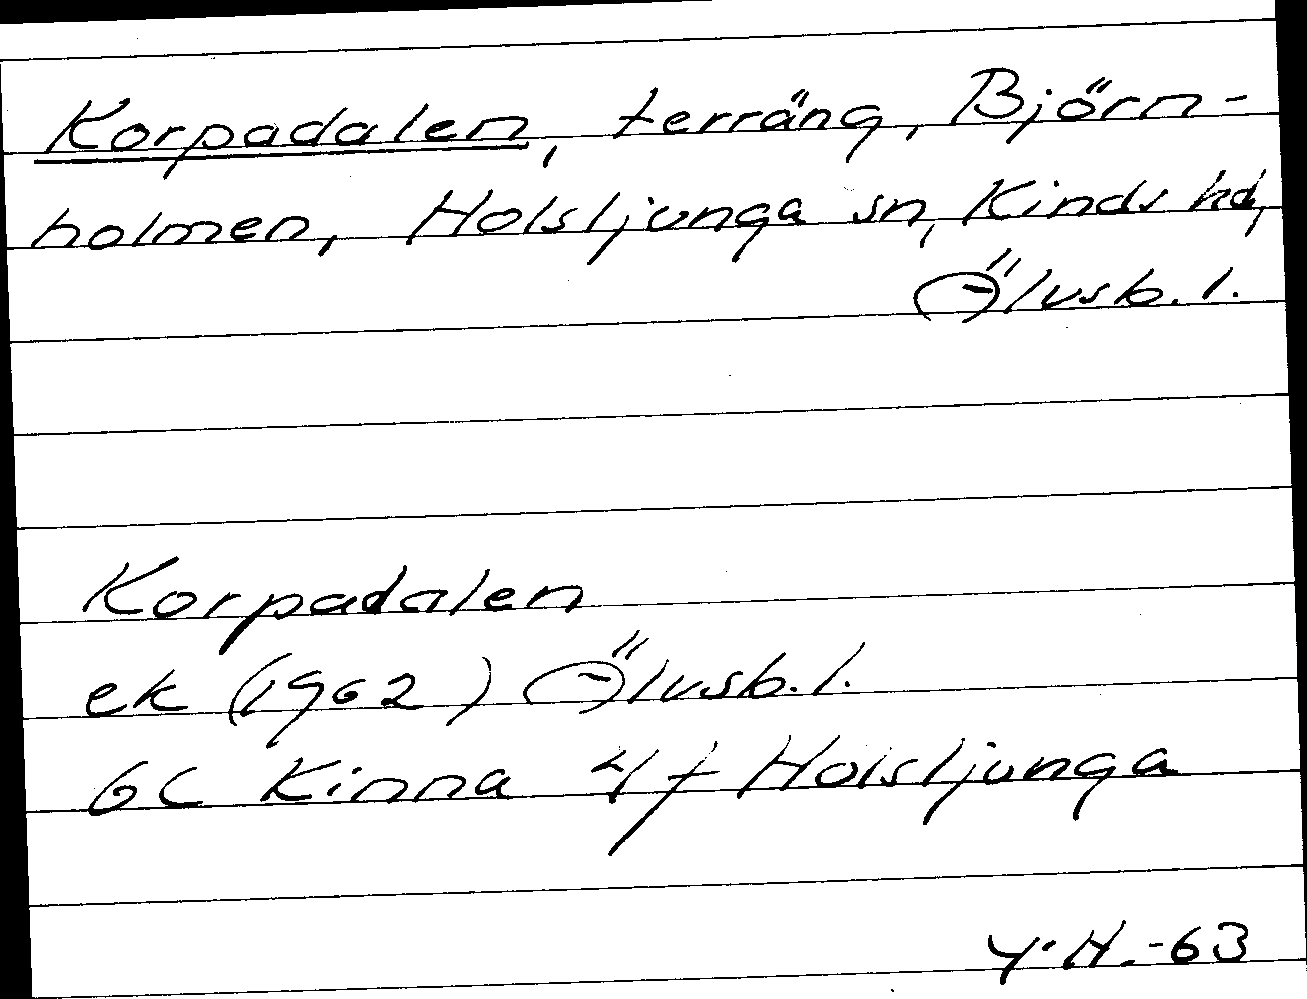 Korpadalen, terräng, Björn-
holmen, Holsljunga sn, Kinds hd,
Älvsb. l.
Korpadalen
ek (1962) Älvsb. l.
6C Kinna 4f Holsljunga
Y.H.-63